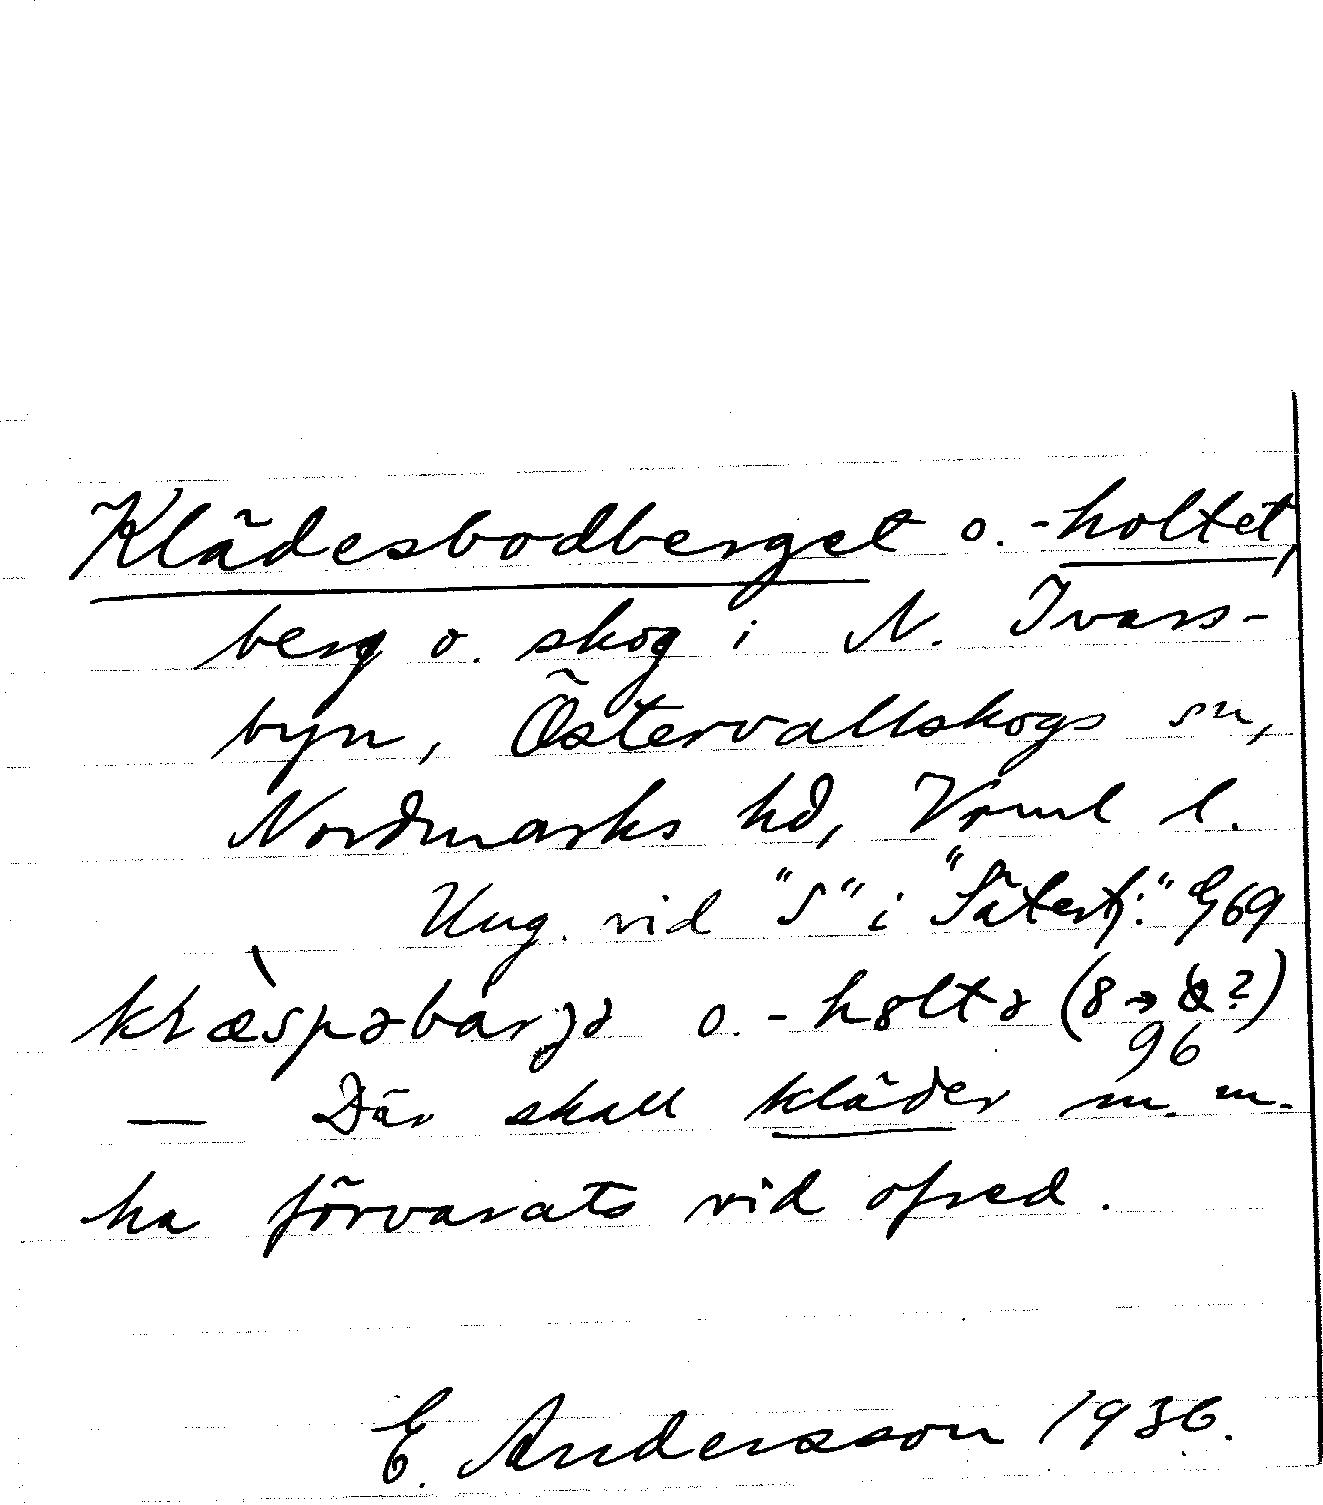 Klädesbodberget o. -holtet,
berg o. skog i N. Ivars-
byn, Östervallskogs sn,
Nordmarks hd, Vrml l.
Ung. vid "S" i "Sätertj." G69
o. -həltə (8 → ?)
96
— Där skall kläder m. m.
ha förvarats vid ofred.
E. Andersson 1936.